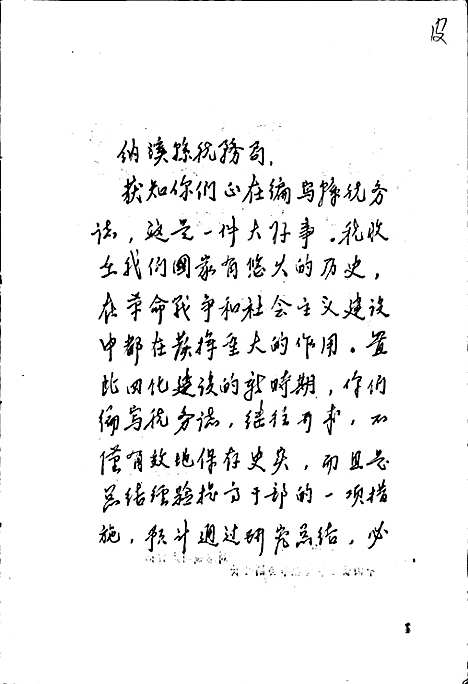 纳溪县税务局,
获知你们正在编写县税务
志,这是一件大好事。税收
在我们国家有悠久的历史,
在革命战争和社会主义建设
中都在发挥重大的作用。置
此四化建设的新時期,你们
编写税务志,继往开来,不
僅有效地保存史实,而且是
总结经验提高干部的一项措
施,预计通过研究总结,必